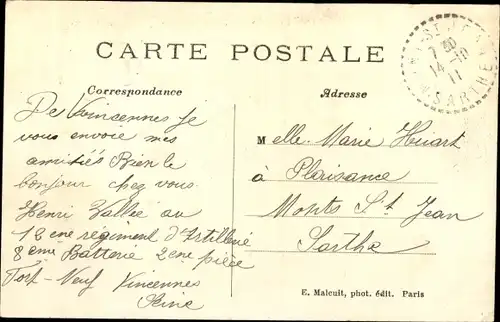 CARTE POSTALE
Correspondance
Adresse
De Vincennes Je
vous envoie mes
amitiés Bien le
bonjour chez vous
Henri Vallée au
12ene régiment d'Artillerie
8ème Batterie 2ene pièce
Fort-Neuf Vincennes
Seine
Melle. Marie Huart
à Plaisance
Monts St Jean
Sarthe
E. Malcuit, phot. édit. Paris
7 30
14 -10
11
SARTHE